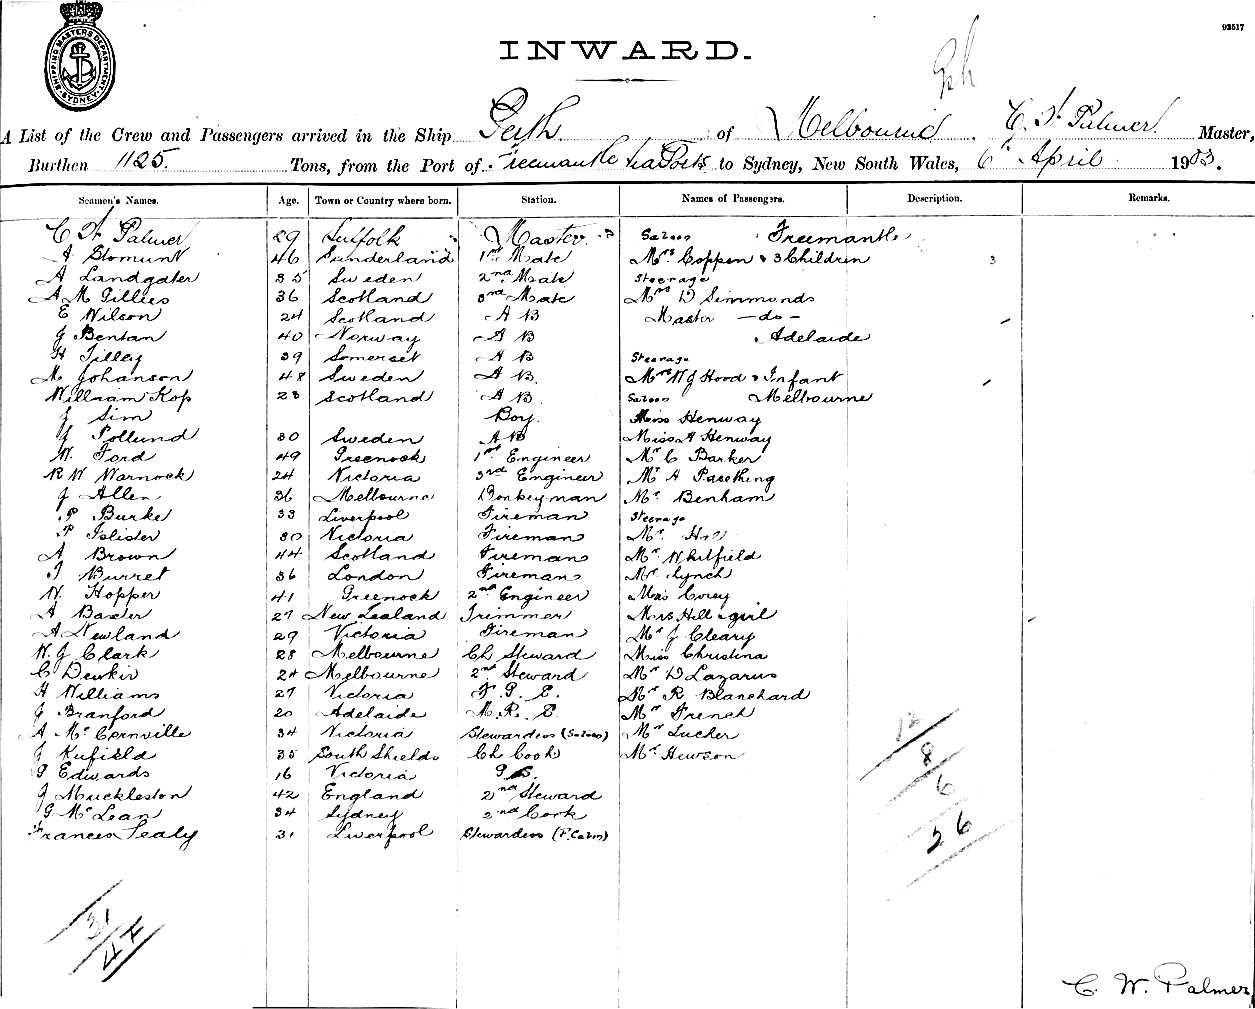 SHIPPING MASTERS DEPARTMENT. SYDNEY
93517
INWARD.
A List of the Crew and Passengers arrived in the Ship Perth of Melbourne C. W. Palmer Master,
Burthen 1125 Tons, from the Port of Freemantle via Ports to Sydney, New South Wales, 6th April 1903.
Seamen's Names. Age. Town or Country where born. Station. Names of Passengers. Description. Remarks.
C W Palmer 29 Suffolk Master Saloon Freemantle
46 Sunderland 1st Mate Mrs Coppen & 3 Children 3
A Landgater 35 Sweden 2nd Mate Steerage
A M Gillies 36 Scotland 3rd Mate Mrs D Simmonds
E Wilson 24 Scotland A B Master - do -
J Bentan 40 Norway A B Adelaide
H Tilley 39 Somerset A B Steerage
M Johanson 48 Sweden A B. Mrs W J Hood & Infant
William Kop 23 Scotland A B. Saloon Melbourne
J Sim Boy. Miss Henway
J Pollund 30 Sweden A B Miss A Henway
W. Ford 49 Greenock 1st Engineer Mr C Barker
R W Warnock 24 Victoria 3rd Engineer Mr A
J Allen 36 Melbourne Donkeyman Mr Benham
P Burke 33 Liverpool Fireman Steerage
P 30 Victoria Fireman Mr
A Brown 44 Scotland Fireman Mr Whitfield
J Burret 36 London Fireman Mr Lynch
W Hopper 41 Greenock 2nd Engineer Miss Corey
A Baxter 27 New Zealand Trimmer Mrs Hill & girl
A Newland 29 Victoria Fireman Mr J Cleary
W. J Clark 28 Melbourne Ch Steward Miss Christina
C 24 Melbourne 2nd Steward Mr D Lazarus
H Williams 27 Victoria F. P. E. Mr R Blanchard
J Branford 20 Adelaide M. R. E. Mr French
A McCornville 34 Victoria Stewardess (Saloon) Mr Tucher
J Kufield 35 South Shields Ch Cook Mr Hewson
G Edwards 16 Victoria
J Muckleston 42 England 2nd Steward
G McLean 34 Sydney 2nd Cook
Frances Sealy 31 Liverpool Stewardess (F. Cabin)
12
8
6
26
31
44
C. W. Palmer